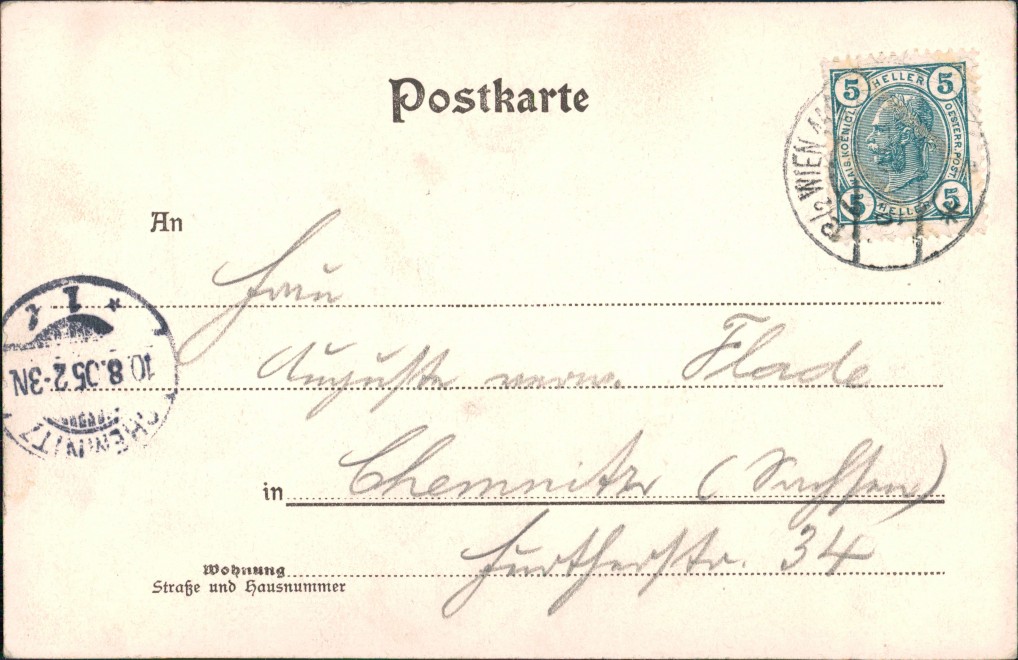 Postkarte
5 HELLER 5
KAIS. KOENIGL. OESTERR. POST.
5 HELLER 5
12/2 WIEN
An
Frau
Auguste verw. Flade
in Chemnitz (Sachsen)
Wohnung
Straße und Hausnummer
Furtherstr. 34
CHEMNITZ
10.8.05 2-3N
* 1